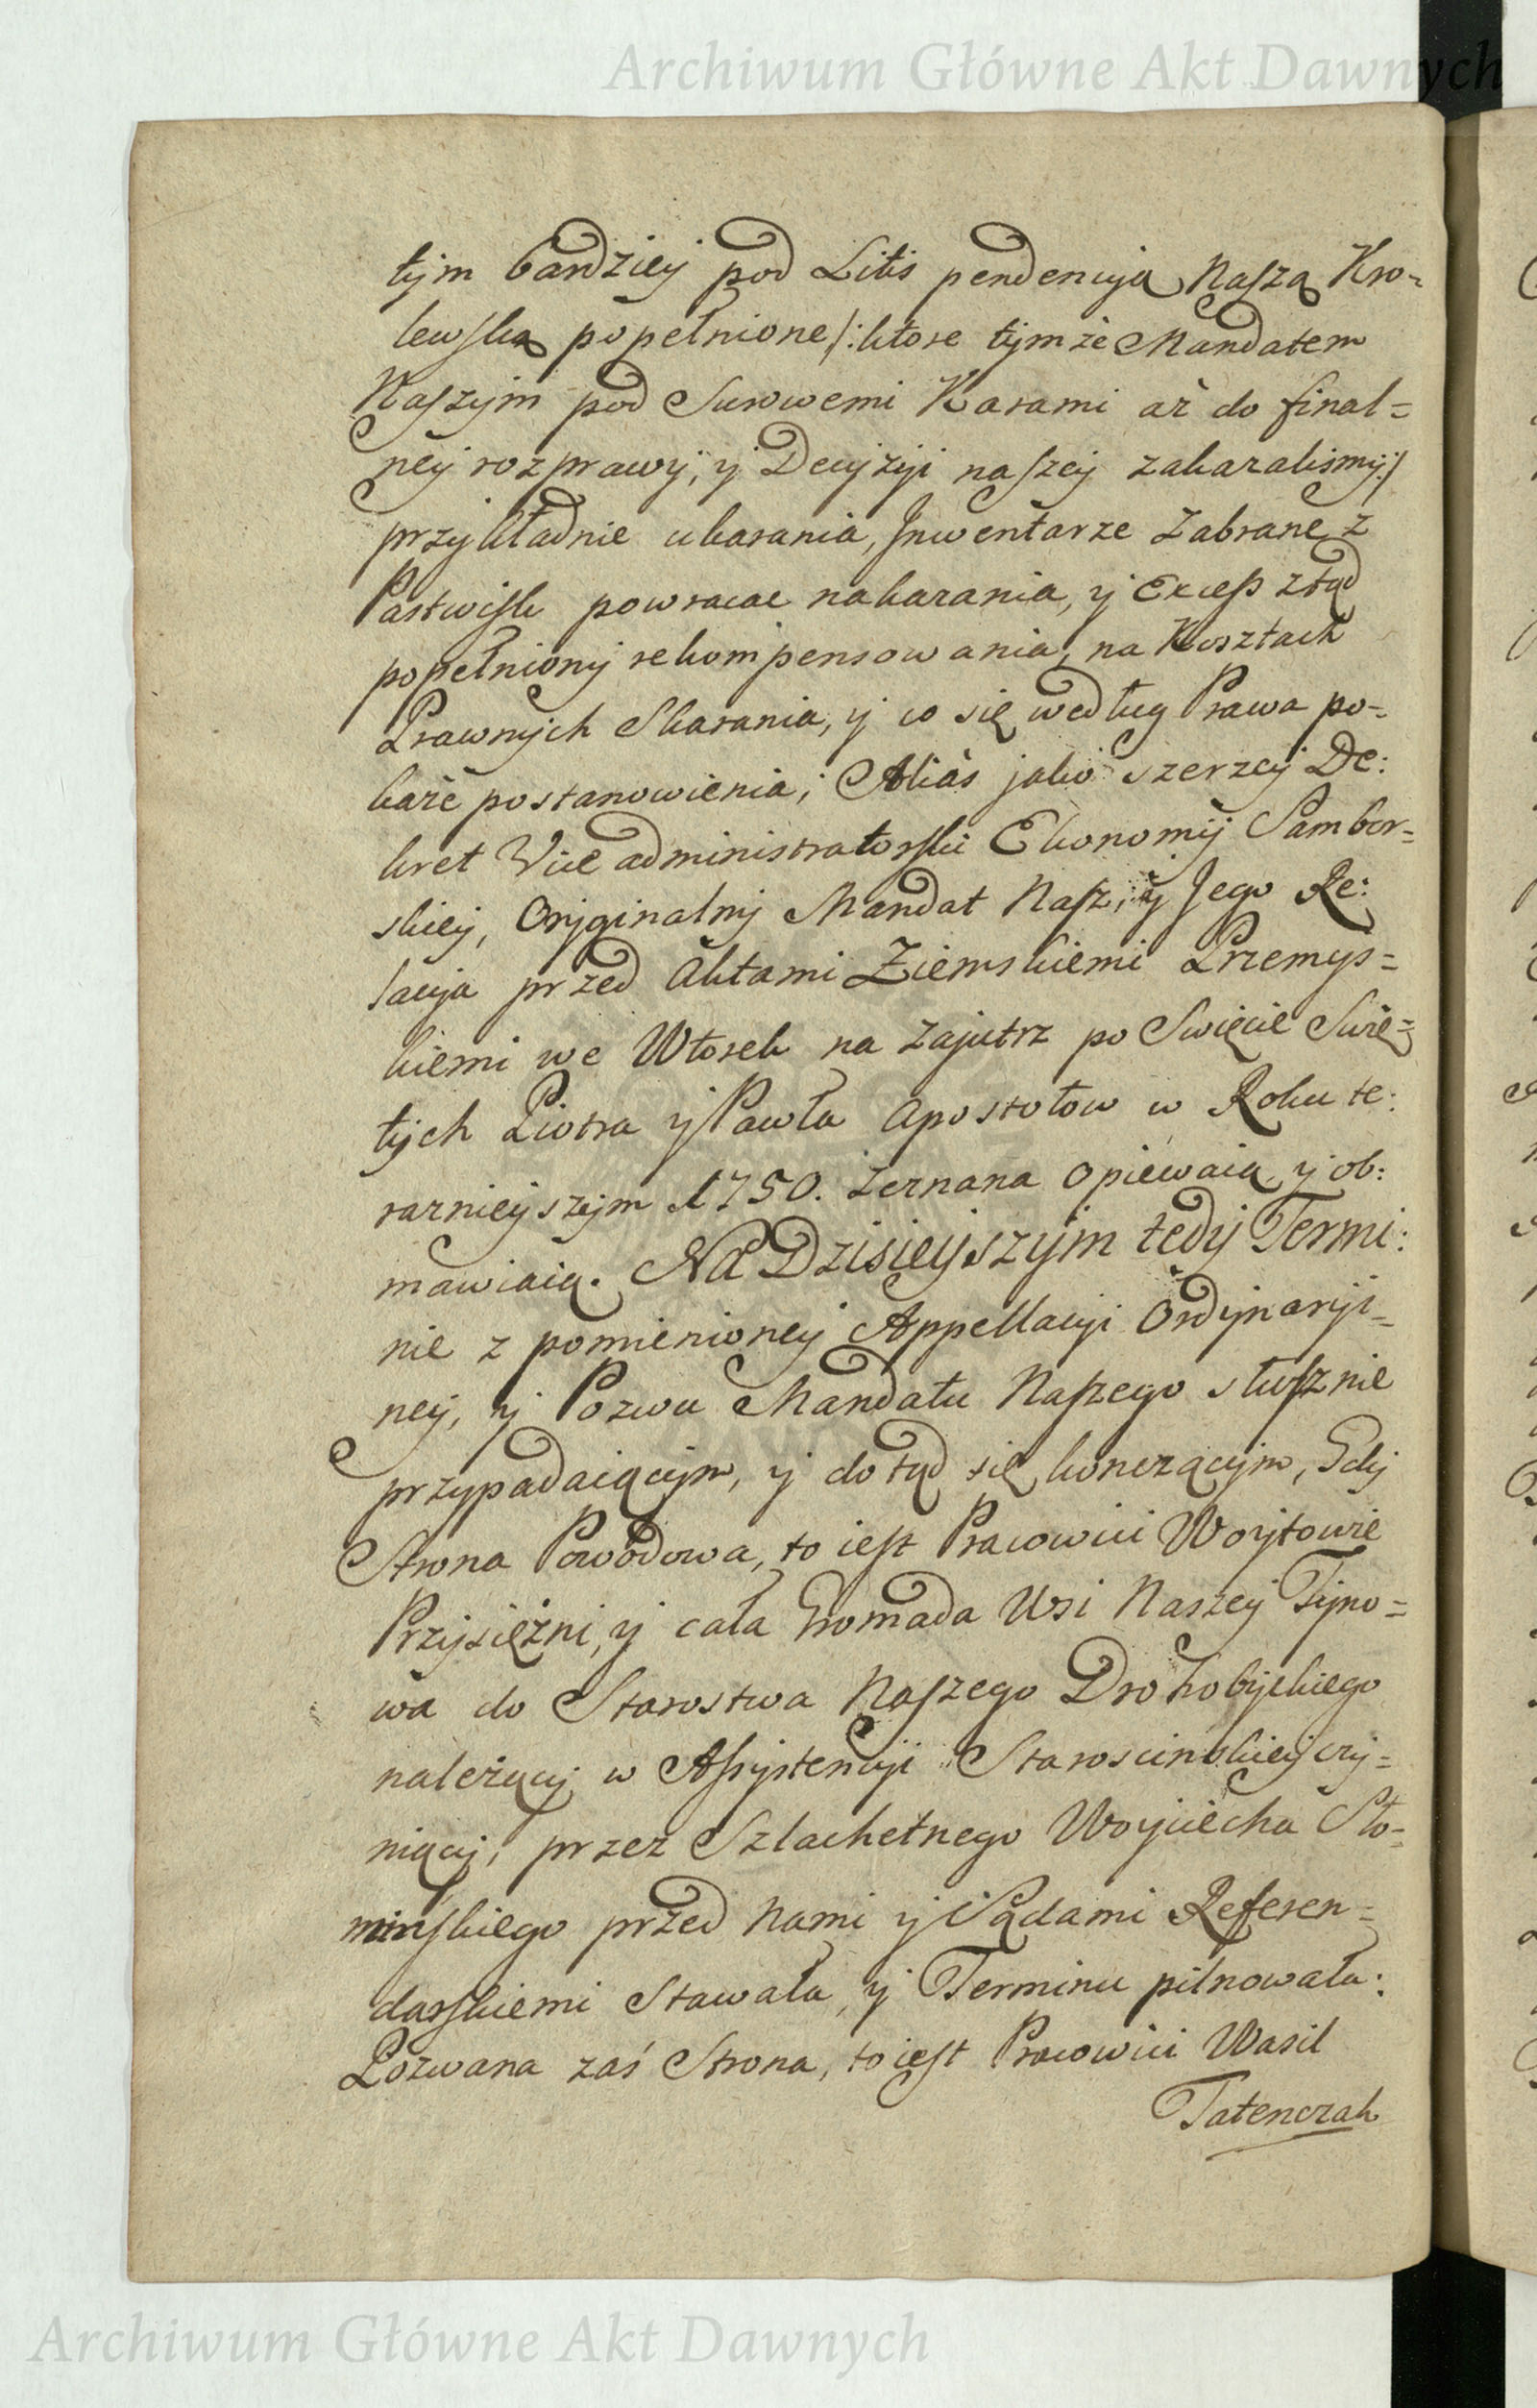 Archiwum Główne Akt Dawnych
tym bardziey pod Litis pendencyą Naszą Kro-
lewską popełnione /: ktore tymże Mandatem
Naszym pod Surowemi Karami aż do final=
ney rozprawy, y Decyzyi naszey zakazalismy :/
przykładnie ukarania, Jnwentarze zabrane z
Pastwisk powracac nakazania, y Excess ztąd
popełniony rekompensowania, na Kosztach
Prawnych Skazania, y co się według Prawa po-
każe postanowienia; Alias jako szerzey De:
kret Vice administratorski Ekonomij Sambor=
skiey, Oryginalny Mandat Nasz, y Jego Re:
lacya przed Aktami Ziemskiemi Przemys=
kiemi we Wtorek na Zajutrz po Swięcie Swię=
tych Piotra y Pawła Apostołow w Roku te:
razniejszym 1750. Zeznana Opiewaią, y ob:
mawiaią. Na Dzisieyszym tedy Termi:
nie z pomienioney Appellacyi Ordynaryi-
ney, y Pozwu Mandatu Naszego słusznie
przypadaiącym, y do tąd się konczącym, Gdy
Strona Powodowa, to iest Pracowici Woytowie
Przysiężni, y cała Gromada Wsi Naszey Tyno=
wa do Starostwa Naszego Drohobyckiego
należący w Assystencyi Starościnskiey czy=
niący, przez Szlachetnego Woyciecha Sło-
mińskiego przed Nami y Sądami Referen=
darskiemi Stawała, y Terminu pilnowała:
Pozwana zaś Strona, to iest Pracowici Wasil
Tatenczak
Archiwum Główne Akt Dawnych